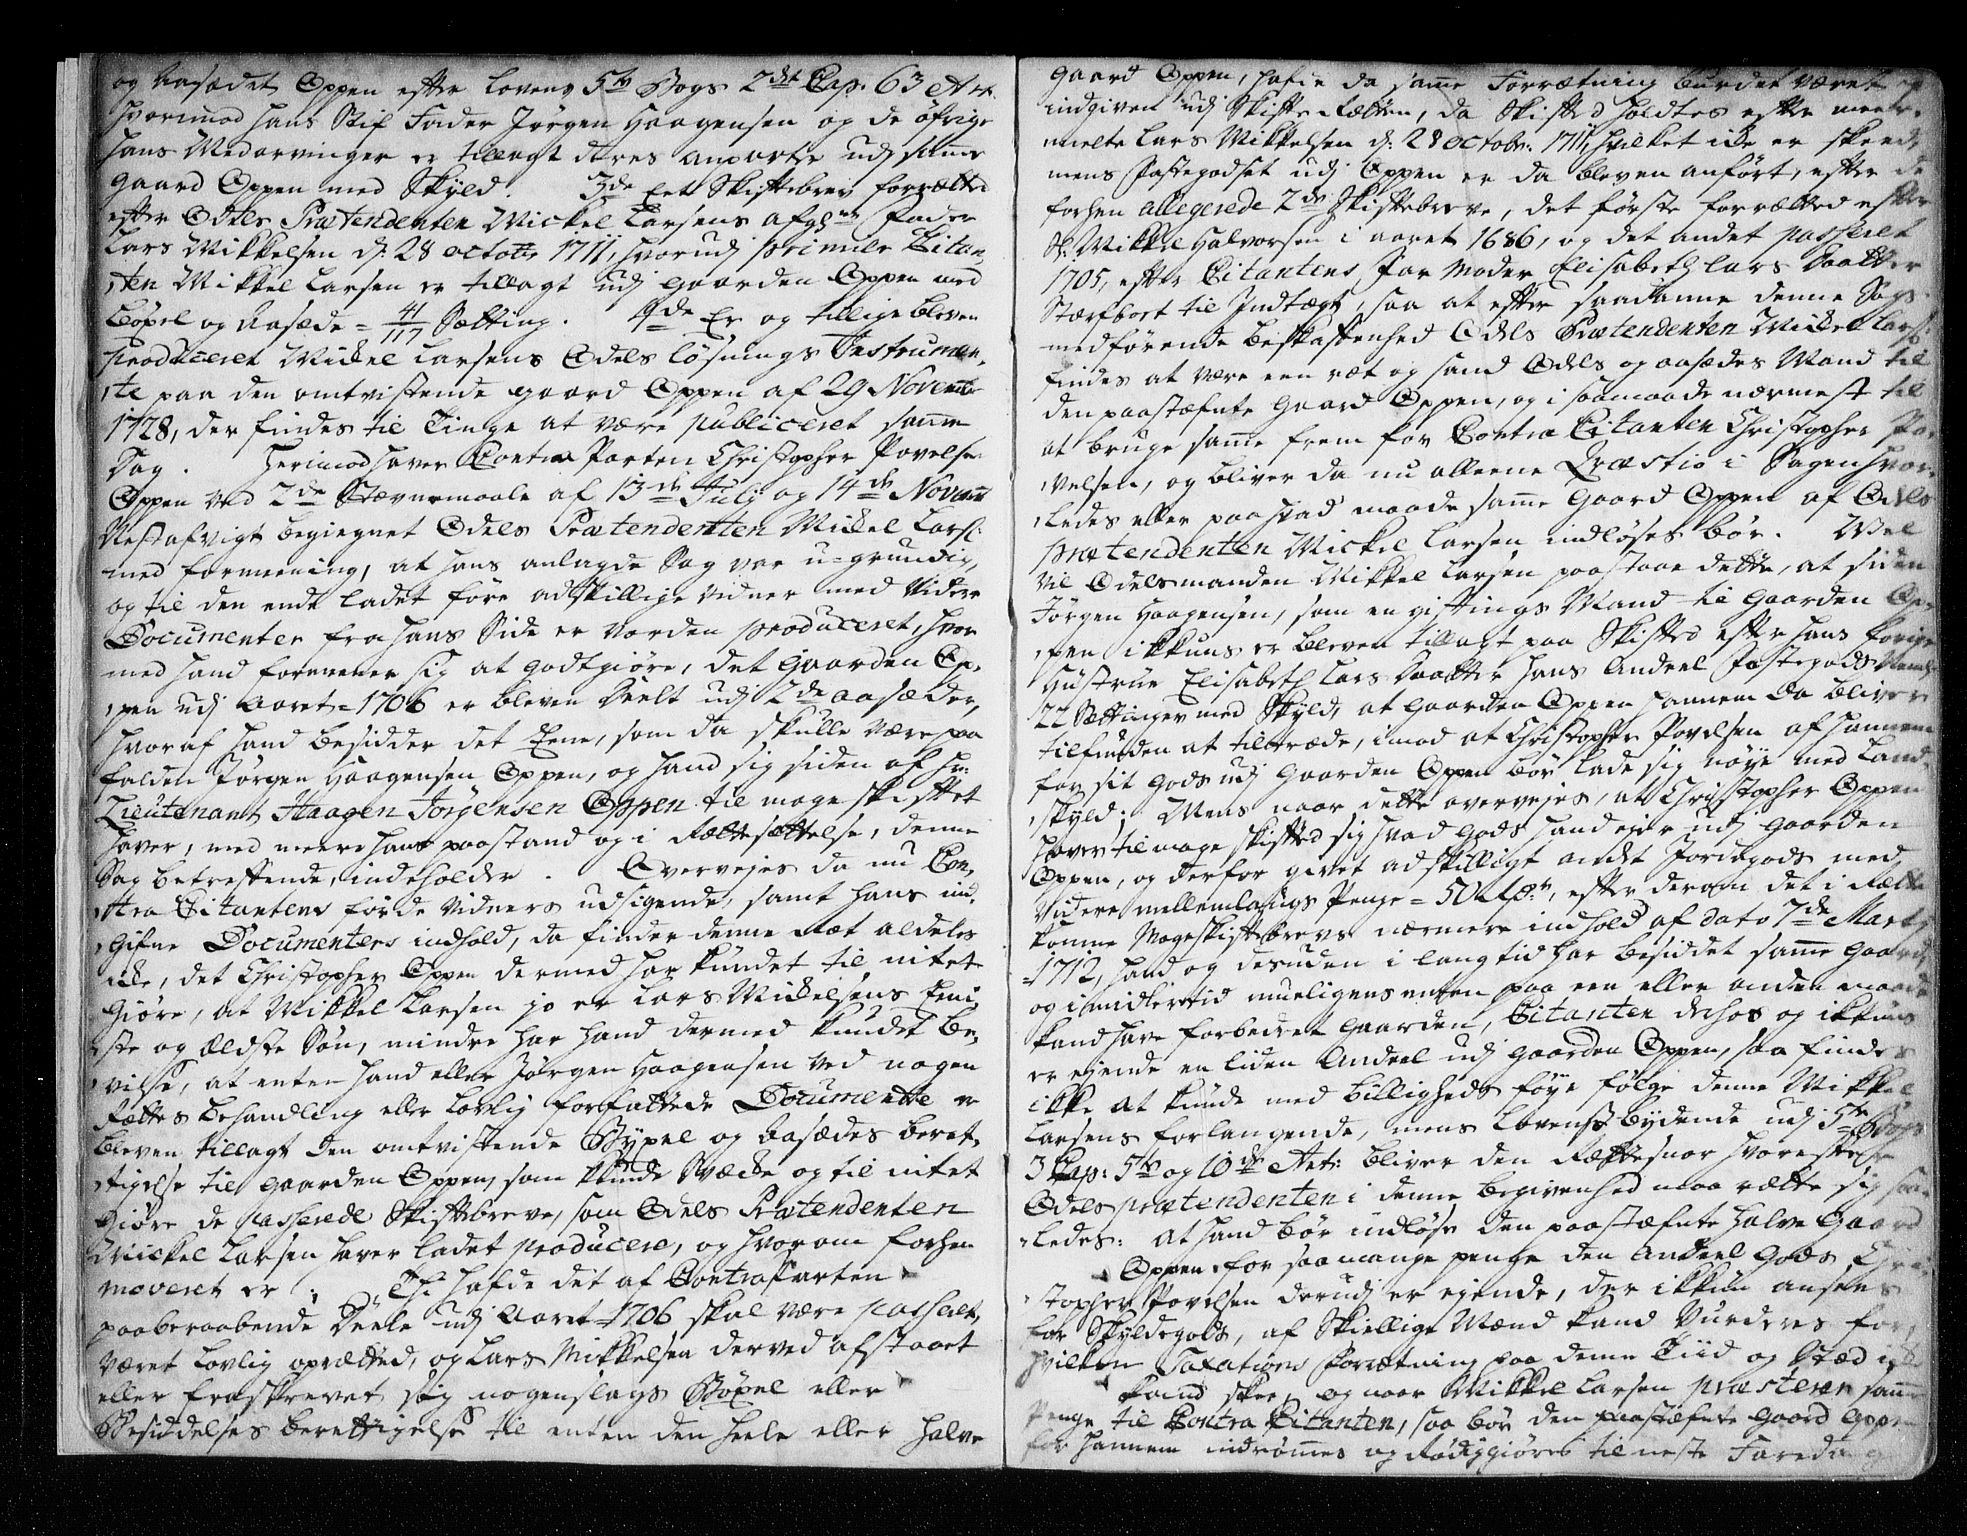 og Aasædet Oppen efter Lovens 5te Bogs 2det Cap: 63 Art.
hvorimod hans Stif Fader Jørgen Haagensen og de øfrige
hans Medarvinger er tillagt deres anparter udj samme
gaard Oppen med Skyld. 3de Eet Skiftebrev forrættet
efter Odels Prætendenten Mickel Larsens afgne Fader
Lars Mikkelsen d: 28 octobr 1711, hvorudj Primule Citan-
ten Mikkel Larsen er tillagt udj gaarden Oppen med
Bøxel og Aasæde = 41/117 Sætting. 4de Er og tillige bleven
produceret Mickel Larsens Odels løsnings Instrumen-
te paa den omtvistende gaard Oppen af 29 Novemb
1728, der findes til Tinge at være publiceret samme
Dag. Herimod haver Contra Parten Christopher Povelsen
Oppen ved 2de Stævnemaale af 13de Julj og 14de Novemb
Nestafvigt begiegnet Odels Prætendenten Mickel Lars:
med formeening, at hans anlagde Sag var u-grundig,
og til den ende ladet føre adskillige vidner med videre
Documenter fra hans Side er vorden produceret, hvor
med hand formeener sig at godtgiøre, det gaarden Op-
pen udj Aaret 1706 er bleven deelt udj 2de aasæder,
hvoraf hand besidder det Eene, som da skulle være paa
falden Jørgen Haagensen Oppen, og hand sig siden af hr:
Lieutenant Haagen Jørgensen Oppen til mageskiftet
haver, med meere hans paastand og i Rættesættelse, denne
Sag betreffende, indeholder. Overvejes da nu Con-
tra Citantens førde vidners udsigende, samt hans ind-
gifne Documenters indhold, da finder denne Ræt aldeles
icke, det Christopher Oppen dermed har kundet til intet
Giøre, at Mikkel Larsen jo er Lars Mickelsens Eeni-
ste og ældste Søn, mindre har hand dermed kundet be-
viise, at enten hand eller Jørgen Haagensen ved nogen
Rættes behandling eller lovlig forfattede Documente er
bleven tillagt den omtvistende Bøxel og Aasædes beret-
tigelse til gaarden Oppen, som kunde svæcke og til intet
Giøre de passerede Skiftebreve, som Odels Prætendenten
Mickel Larsen haver ladet producere, og hvorom forhen
moveret er; Thi hafde det af Contraparten
paaberaabende Deele udj Aaret 1706 skal være passeret,
været lovlig oprættet, og Lars Mikkelsen derved afstaaet
eller fraskrevet sig nogenslags Bøxel eller
Besiddelses berettigelse til enten den heele eller halve
gaard Oppen, hafde da samme Forrætning burdet været
indgiven udj Skifte Rætten, da Skiftet holdtes efter meer-
mælte Lars Mikkelsen d: 28 octobr: 1711, hvilket icke er skeed,
mens Jordegodset udj Oppen er da bleven anført, efter de
forhen allegerede 2de Skiftebreve, det første forrættet efter
Sl: Mikkel Halvorsen i aaret 1686, og det andet passeret
1705, efter Citantens Far moder Elisabeth Lars Daatter
Sterfboet til Indtægt, saa at efter saadanne denne Sags
medførende beskaffenhed Odels Prætendenten Mickel Lars:
findes at være een ræt og sand Odels og aasædes Mand til
den paastæfnte Gaard Oppen, og i saamaade nærmest til
at bruge samme frem for Contra Citanten Christopher Po-
velsen, og bliver da nu alleene Qvæstio i Sagen hvor-
ledes eller paa hvad maade samme Gaard Oppen af Odels
prætendenten Mickel Larsen indløses bør. Vel
vil Odelsmanden Mikkel Larsen paastaae dette, at siden
Jørgen Haagensen, som en giftings Mand til gaarden Op-
pen ikkuns er bleven tillagt paa Skiftet efter hans forige
Hustrue Elisabeth Lars Daatter hans Andeel Jordegods Neml:
22 Sættinger med Skyld, at gaarden Oppen hannem da bliver
tilfunden at tiltræde, imod at Christopher Povelsen af hannem
for sit gods udj gaarden Oppen bør lade sig nøye med Land-
skyld; Mens naar dette overvejes, at Christopher Oppen
haver til mageskiftet sig hvad gods hand ejer udj gaarden
Oppen, og derfor givet adskilligt andet Jordegods med
Videre mellemlaugs Penge = 50 rdr, efter derom det i Rætte
komne Mageskiftebrevs nærmere indhold af dato 7de Martj
1712, hand og desuden i lang tid har besiddet samme Gaard
og imidlertid mueligens enten paa een eller anden maade
kand have forbedret gaarden, Citanten derhos og ikkuns
er ejende en liden Andeel udj gaarden Oppen, saa findes
ikke at kunde med billigheds føye følge denne Mikkel
Larsens forlangende, mens lovens bydende udj 5te Bogs
3 Cap: 5te og 10de Art: bliver den Rættesnor hvorefter
Odelsprætendenten i denne begivenhed maa rætte sig saa-
ledes: at hand bør indløse den paastæfnte halve Gaard
Oppen for saa mange penge den Andeel Gods Chri-
stopher Povelsen derudj er ejende, der ikkun ansees
for Skyldegods, af Skiellige Mænd kand vurderes for,
hvilken Taxations Forrætning paa denne Tiid og Stæd icke
kand skee, og naar Mikkel Larsen præsterer samme
Penge til Contra Citanten, saa bør den paastæfnte gaard Oppen
for hannem indrømmes og Rødiggiøres til neste Faredag